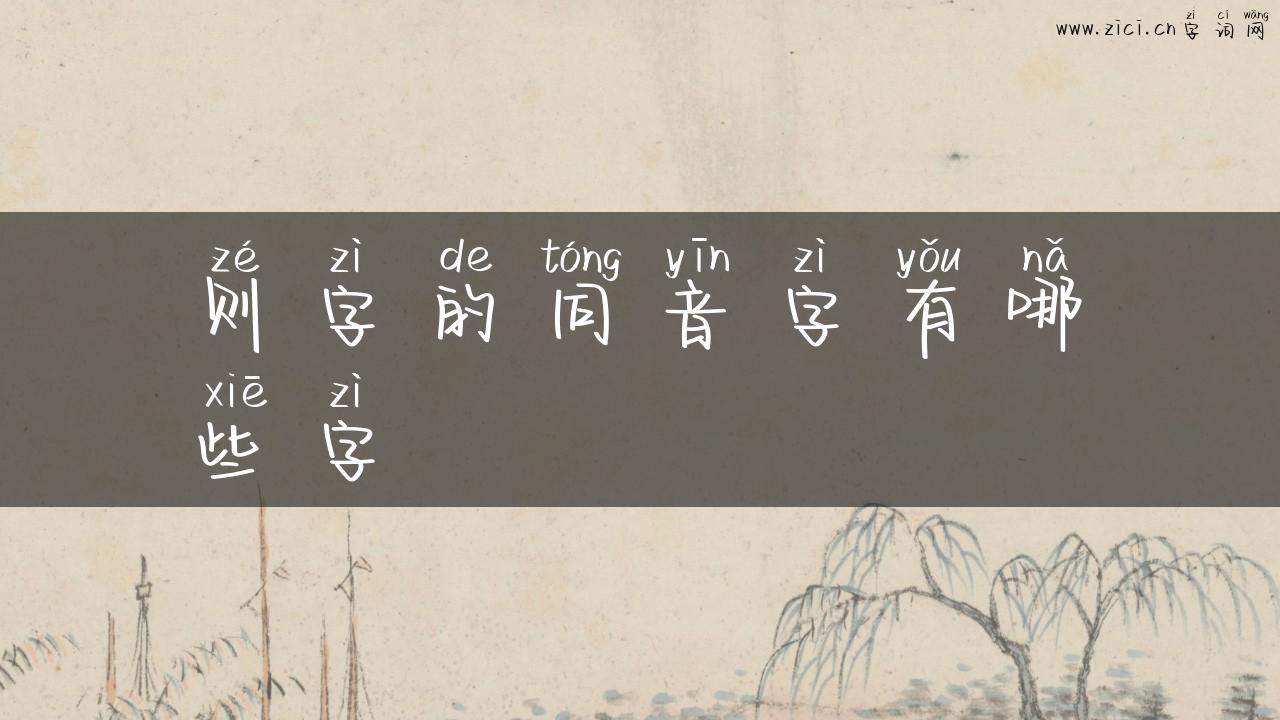 zì cí wǎng
www.zici.cn 字词网
zé zì de tóng yīn zì yǒu nǎ
则字的同音字有哪
xiē zì
些字